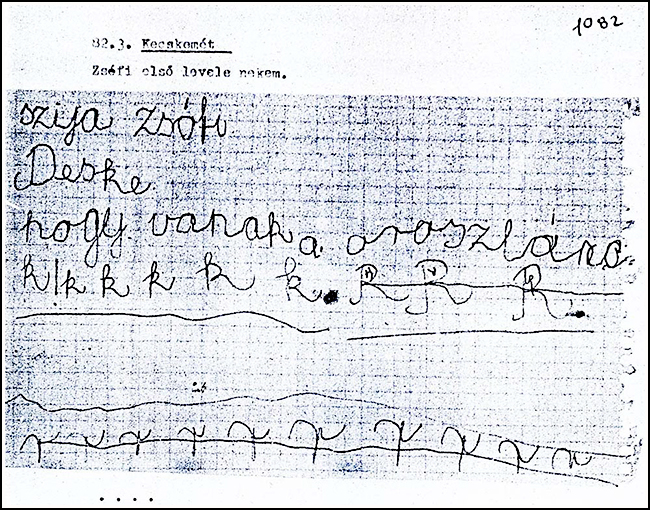 1082
82.3. Kecskemét
Zsófi első levele nekem.
szija zsófi
Deske
hogy vanak a oroszláno
k k k k k k. R R R.
26
. . . .